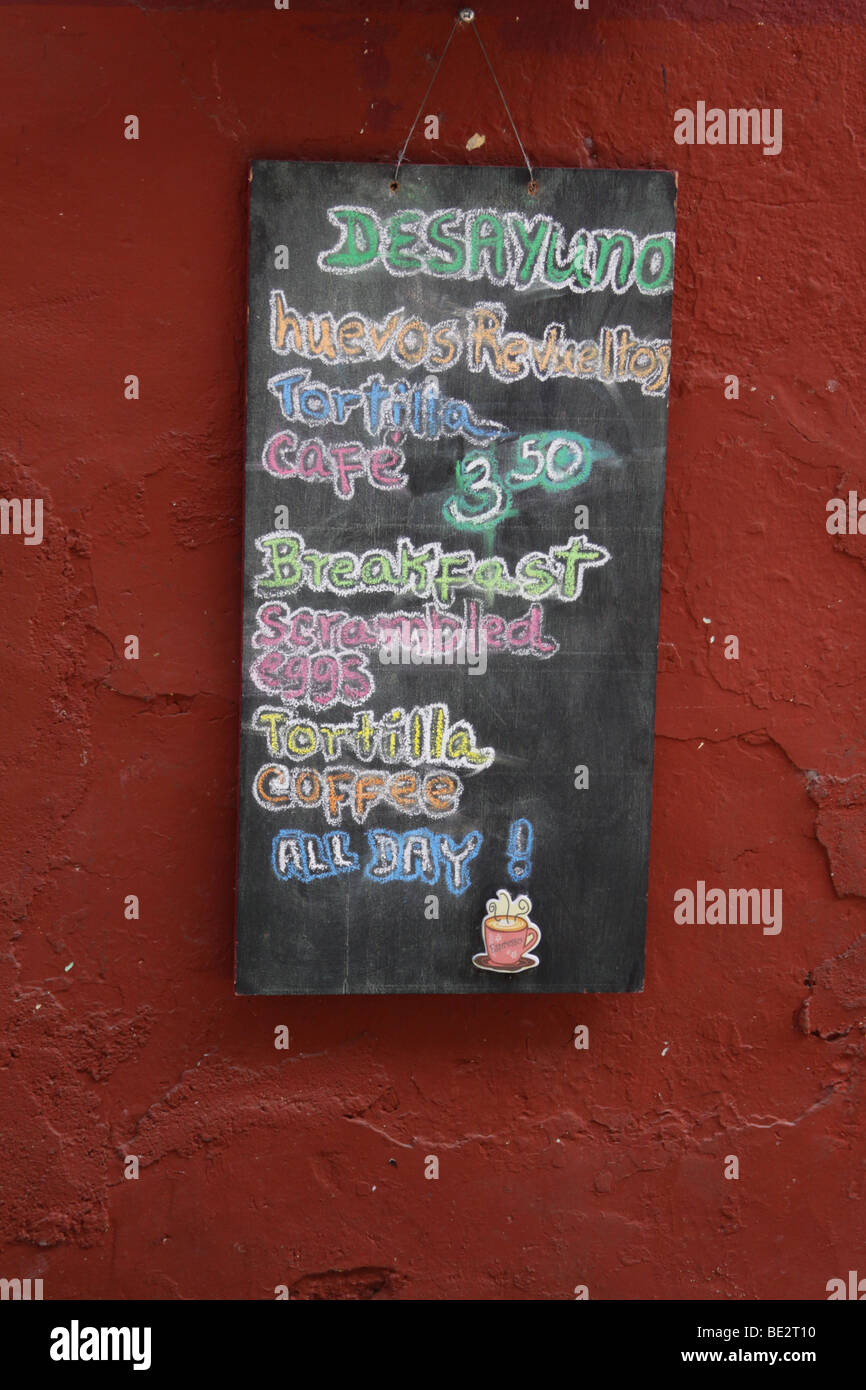 DESAYUNO
huevos Revueltos
Tortilla
Café 3.50
Breakfast
Scrambled
eggs
Tortilla
Coffee
ALL DAY !
Espresso
alamy
Image ID: BE2T10
www.alamy.com